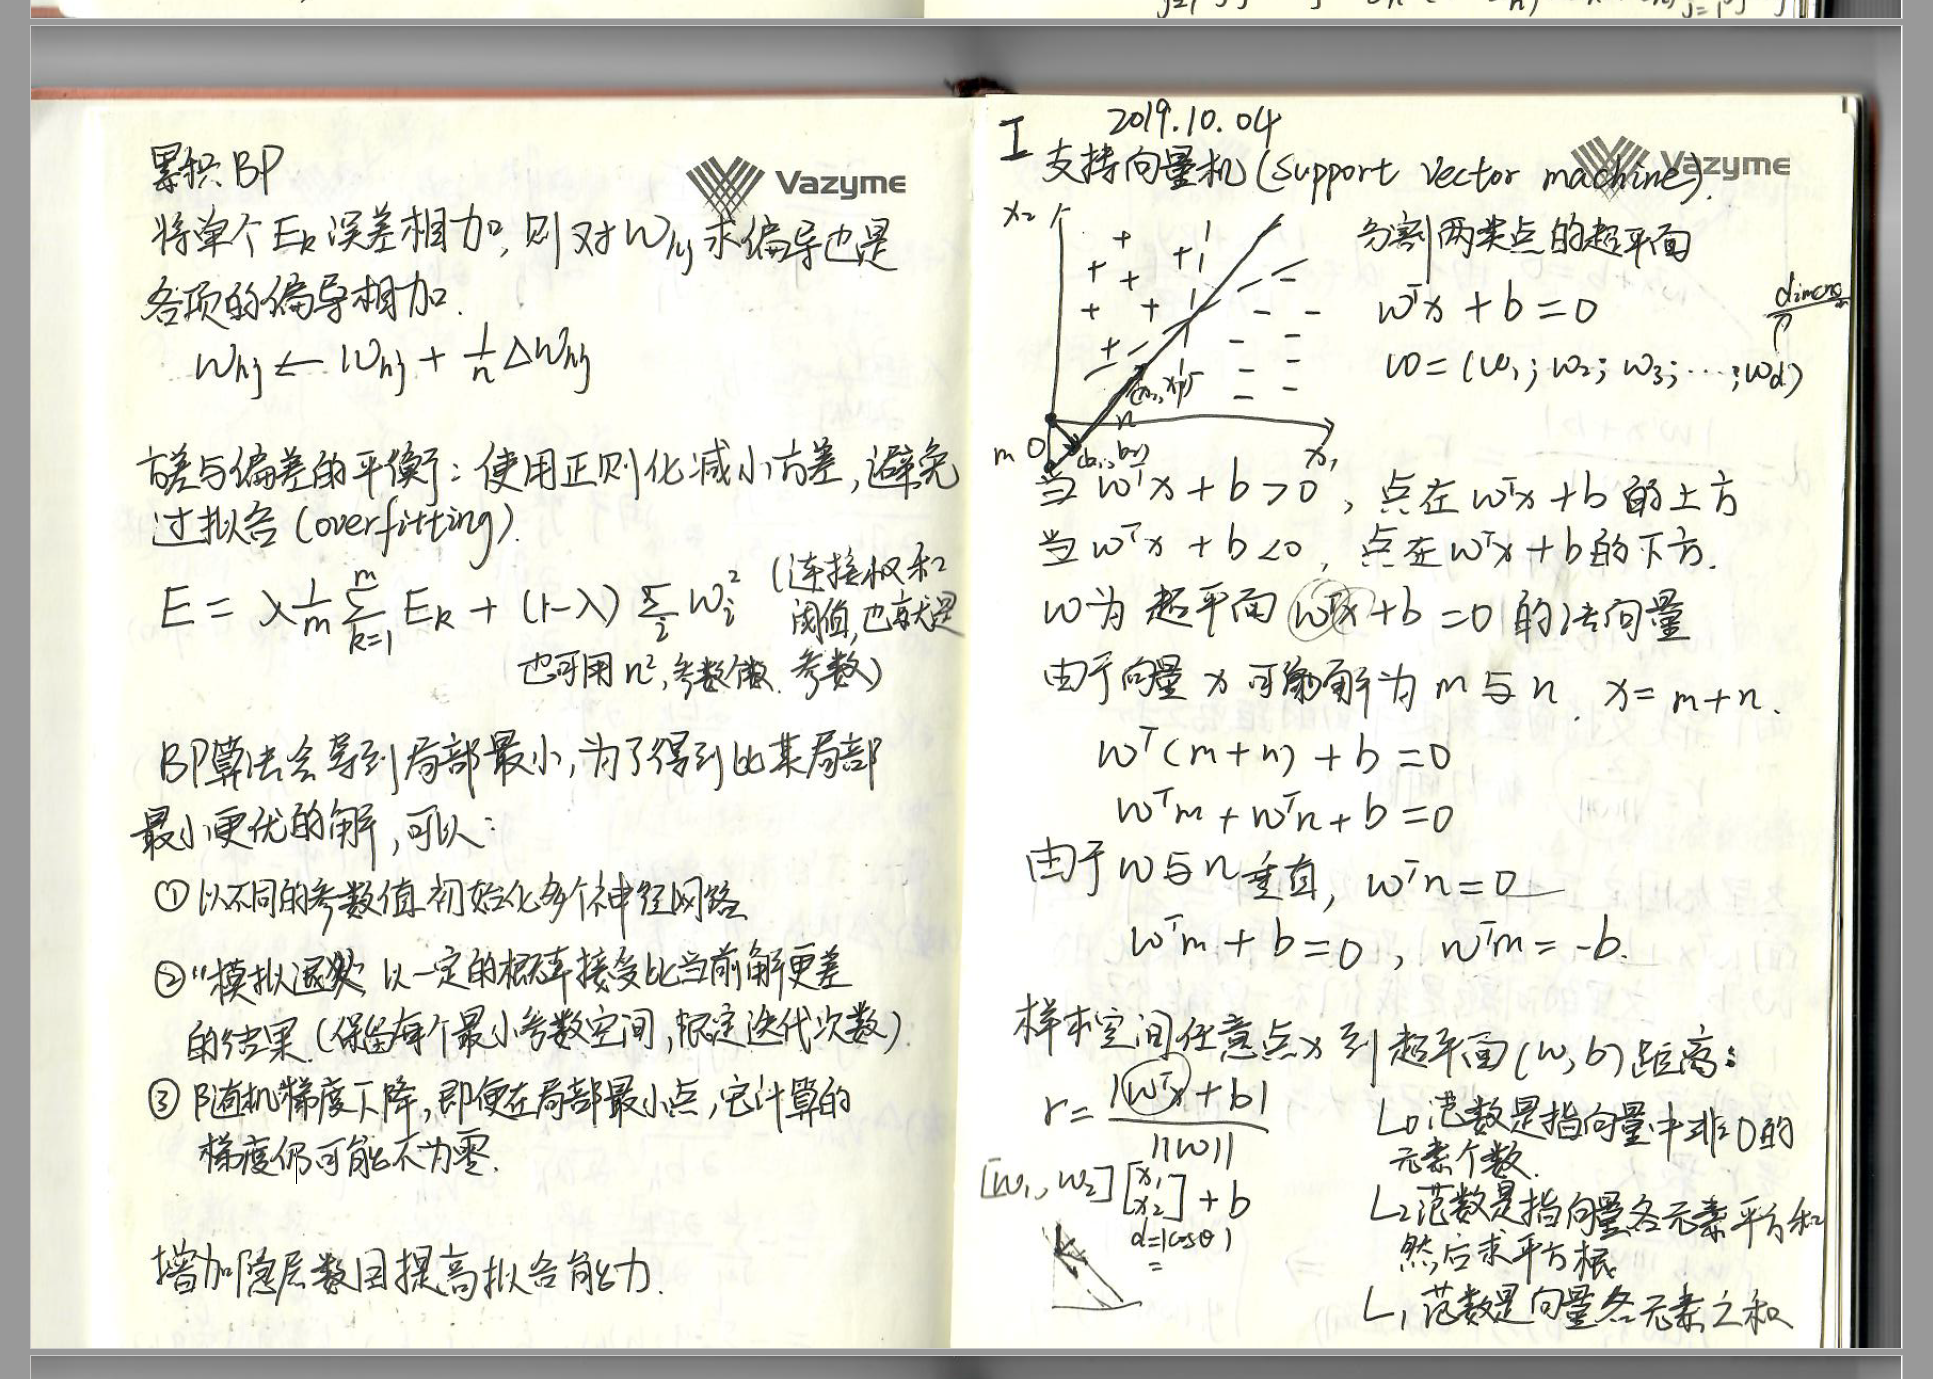 累积BP
Vazyme
将单个Ek误差相加,则对Whj求偏导也是
各项的偏导相加.
Whj ← Whj + 1/n ΔWhj
方差与偏差的平衡:使用正则化减小方差,避免
过拟合(overfitting).
E = λ 1/m Σ(k=1→m) Ek + (1-λ) Σi wi²
(连接权和
阈值,也就是
参数)
也可用n²,参数个数.
BP算法会导到局部最小,为了得到比某局部
最小更优的解,可以:
①以不同的参数值初始化多个神经网络
②"模拟退火,以一定的概率接受比当前解更差
的结果.(保留每个最小参数空间,限定迭代次数)
③随机梯度下降,即便在局部最小点,它计算的
梯度仍可能不为零.
增加隐层数目提高拟合能力.
2019.10.04
I 支持向量机(support vector machine).
Vazyme
x₂
分割两类点的超平面
wᵀx + b = 0
w = (w₁; w₂; w₃; …; wd)
n
m 0
x₁
当 wᵀx + b > 0, 点在 wᵀx + b 的上方
当 wᵀx + b < 0, 点在 wᵀx + b 的下方.
w为超平面 wᵀx + b = 0 的法向量
由于向量 x 可解为 m 与 n. x = m + n.
wᵀ(m+n) + b = 0
wᵀm + wᵀn + b = 0
由于 w 与 n 垂直, wᵀn = 0
wᵀm + b = 0, wᵀm = -b.
样本空间任意点x到超平面(w,b)距离:
r = |wᵀx + b| / ||w||
[w₁, w₂] [x₁ x₂] + b
d=|cosθ|
=
L₀范数是指向量中非0的
元素个数.
L₂范数是指向量各元素平方和
然后求平方根
L₁范数是向量各元素之和